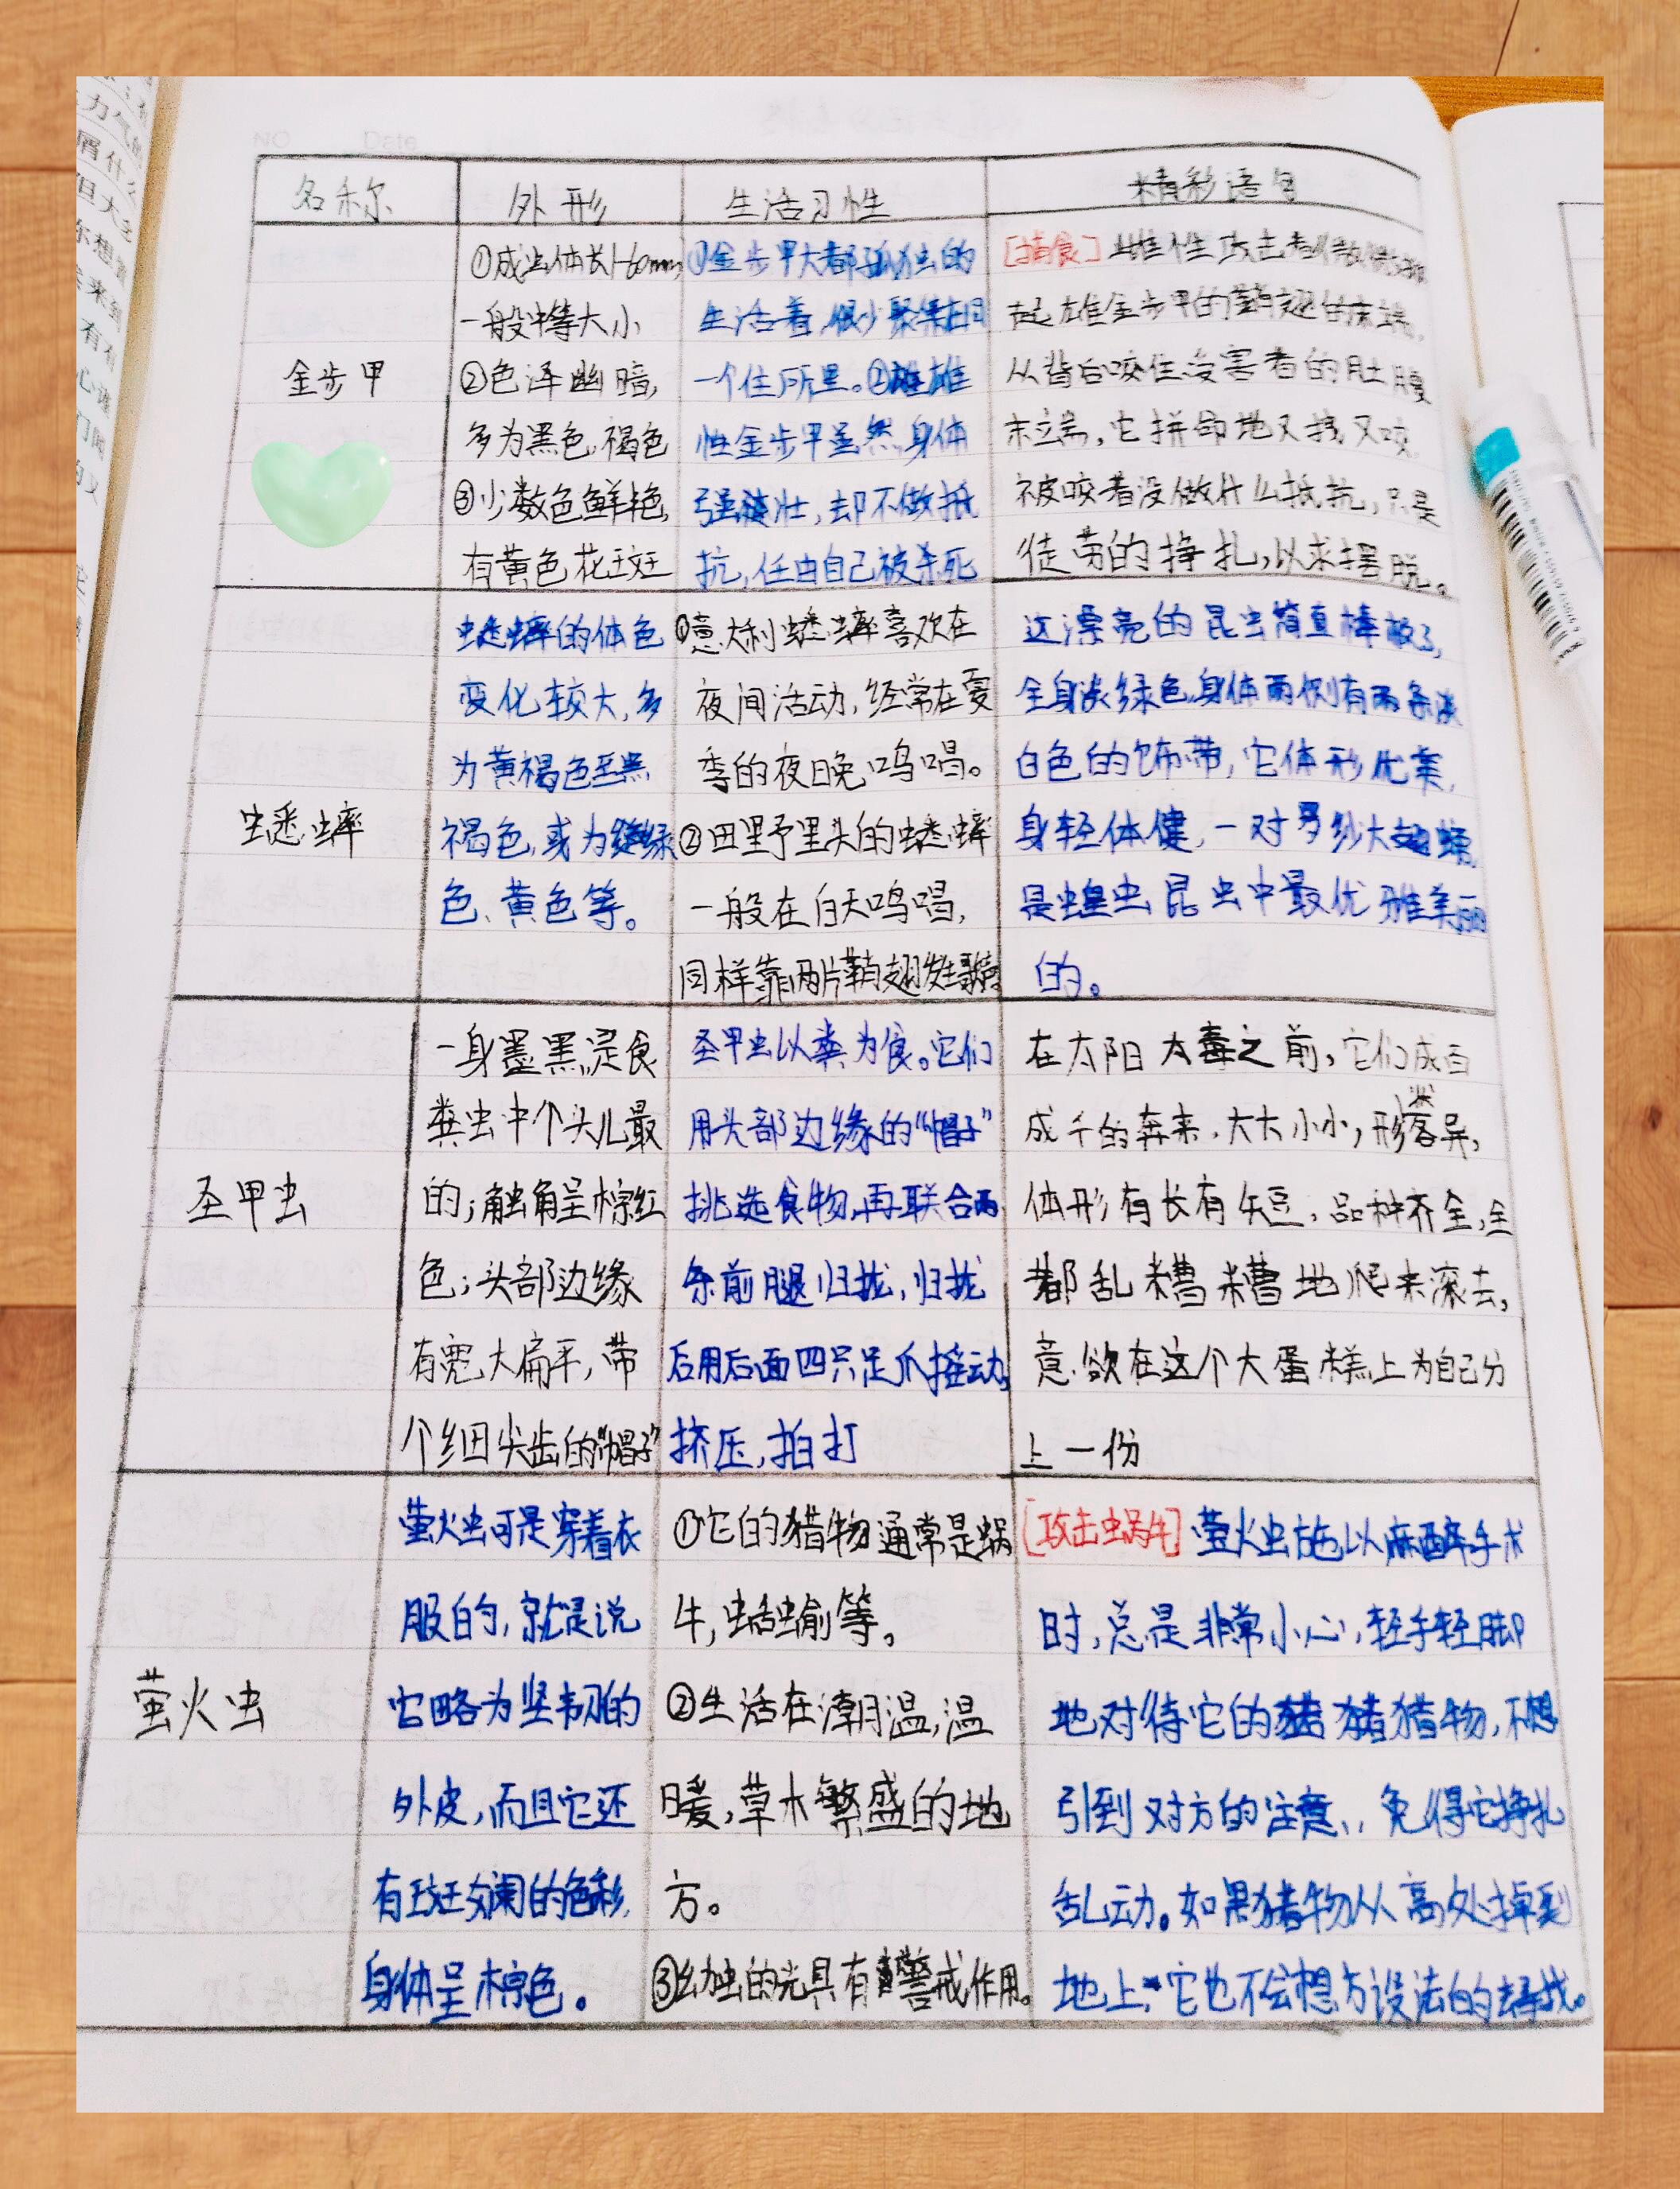 NO Date
名称 外形 生活习性 精彩语句
金步甲
①成虫体长1-60mm,
一般中等大小
②色泽幽暗,
多为黑色,褐色
③少数色鲜艳,
有黄色花斑
①金步甲大都孤独的
生活着,很少聚集在
一个住所里。②雄
性金步甲虽然身体
强壮,却不做抵
抗,任由自己被杀死
[捕食] 雌性攻击者
起雄金步甲的鞘翅的末端,
从背后咬住受害者的肚腹
末端,它拼命地又拽又咬,
被咬者没做什么抵抗,只是
徒劳的挣扎,以求摆脱。
蟋蟀
蟋蟀的体色
变化较大,多
为黄褐色至黑
褐色,或为绿
色、黄色等。
①意大利蟋蟀喜欢在
夜间活动,经常在夏
季的夜晚鸣唱。
②田里野里头的蟋蟀
一般在白天鸣唱,
同样靠两片鞘翅发
这漂亮的昆虫简直棒极了,
全身淡绿色,身体两侧有两条淡
白色的饰带,它体形优美,
身轻体健,一对大翅
是蝗虫昆虫中最优雅美丽
的。
圣甲虫
一身墨黑,是食
粪虫中个头儿最
的;触角呈棕红
色;头部边缘
有宽大扁平,带
个细尖齿的“帽子”
圣甲虫以粪为食。它们
用头部边缘的“帽子”
挑选食物,再联合两
条前腿归拢,归拢
后用后面四只足爪摇动,
挤压,拍打
在太阳太毒之前,它们成百
成千的奔来,大大小小,形状各异,
体形有长有短,品种齐全,全
都乱糟糟地爬来滚去,
意欲在这个大蛋糕上为自己分
上一份
萤火虫
萤火虫可是穿着衣
服的,就是说
它略为坚韧的
外皮,而且它还
有斑斓的色彩,
身体呈棕色。
①它的猎物通常是蜗
牛,蛞蝓等。
②生活在潮温,温
暖,草木繁盛的地
方。
③幼虫的光具有警戒作用。
[攻击蜗牛] 萤火虫施以麻醉手术
时,总是非常小心,轻手轻脚
地对待它的猎物,不想
引到对方的注意,免得它挣扎
乱动。如果猎物从高处掉到
地上,它也不会想方设法的去寻找。